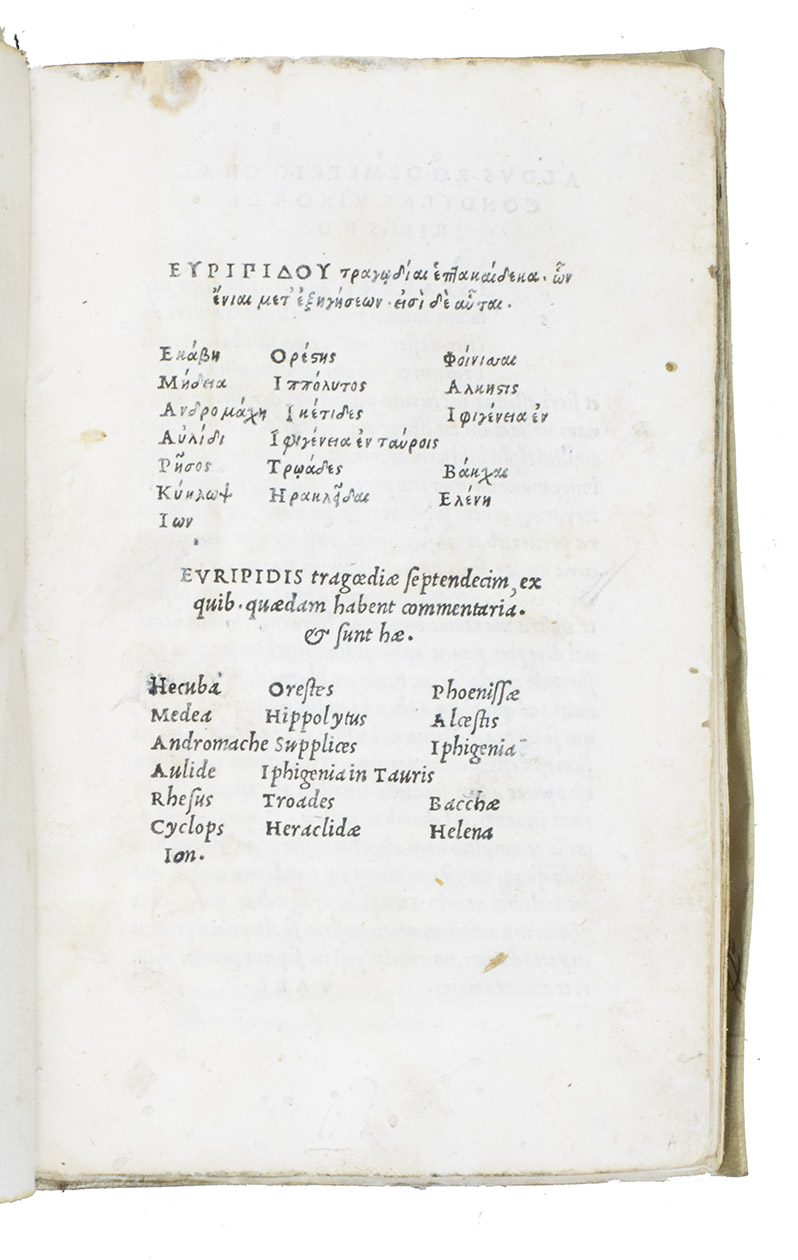 ΕΥΡΙΠΙΔΟΥ τραγῳδίαι ἑπτακαίδεκα· ὧν
ἔνιαι μετ᾽ ἐξηγήσεων· εἰσὶ δὲ αὗται.
Εκάβη Ορέστης Φοίνισσαι
Μήδεια Ιππόλυτος Αλκηστις
Ανδρομάχη Ικέτιδες Ιφιγένεια ἐν
Αὐλίδι Ιφιγένεια ἐν ταύροις
Ρῆσος Τρωάδες Βάκχαι
Κύκλωψ Ηρακλεῖδαι Ελένη
Ιων
EVRIPIDIS tragœdiæ septendecim, ex
quib. quædam habent commentaria.
& sunt hæ.
Hecuba Orestes Phoenissæ
Medea Hippolytus Alcestis
Andromache Supplices Iphigenia
Aulide Iphigenia in Tauris
Rhesus Troades Bacchæ
Cyclops Heraclidæ Helena
Ion.